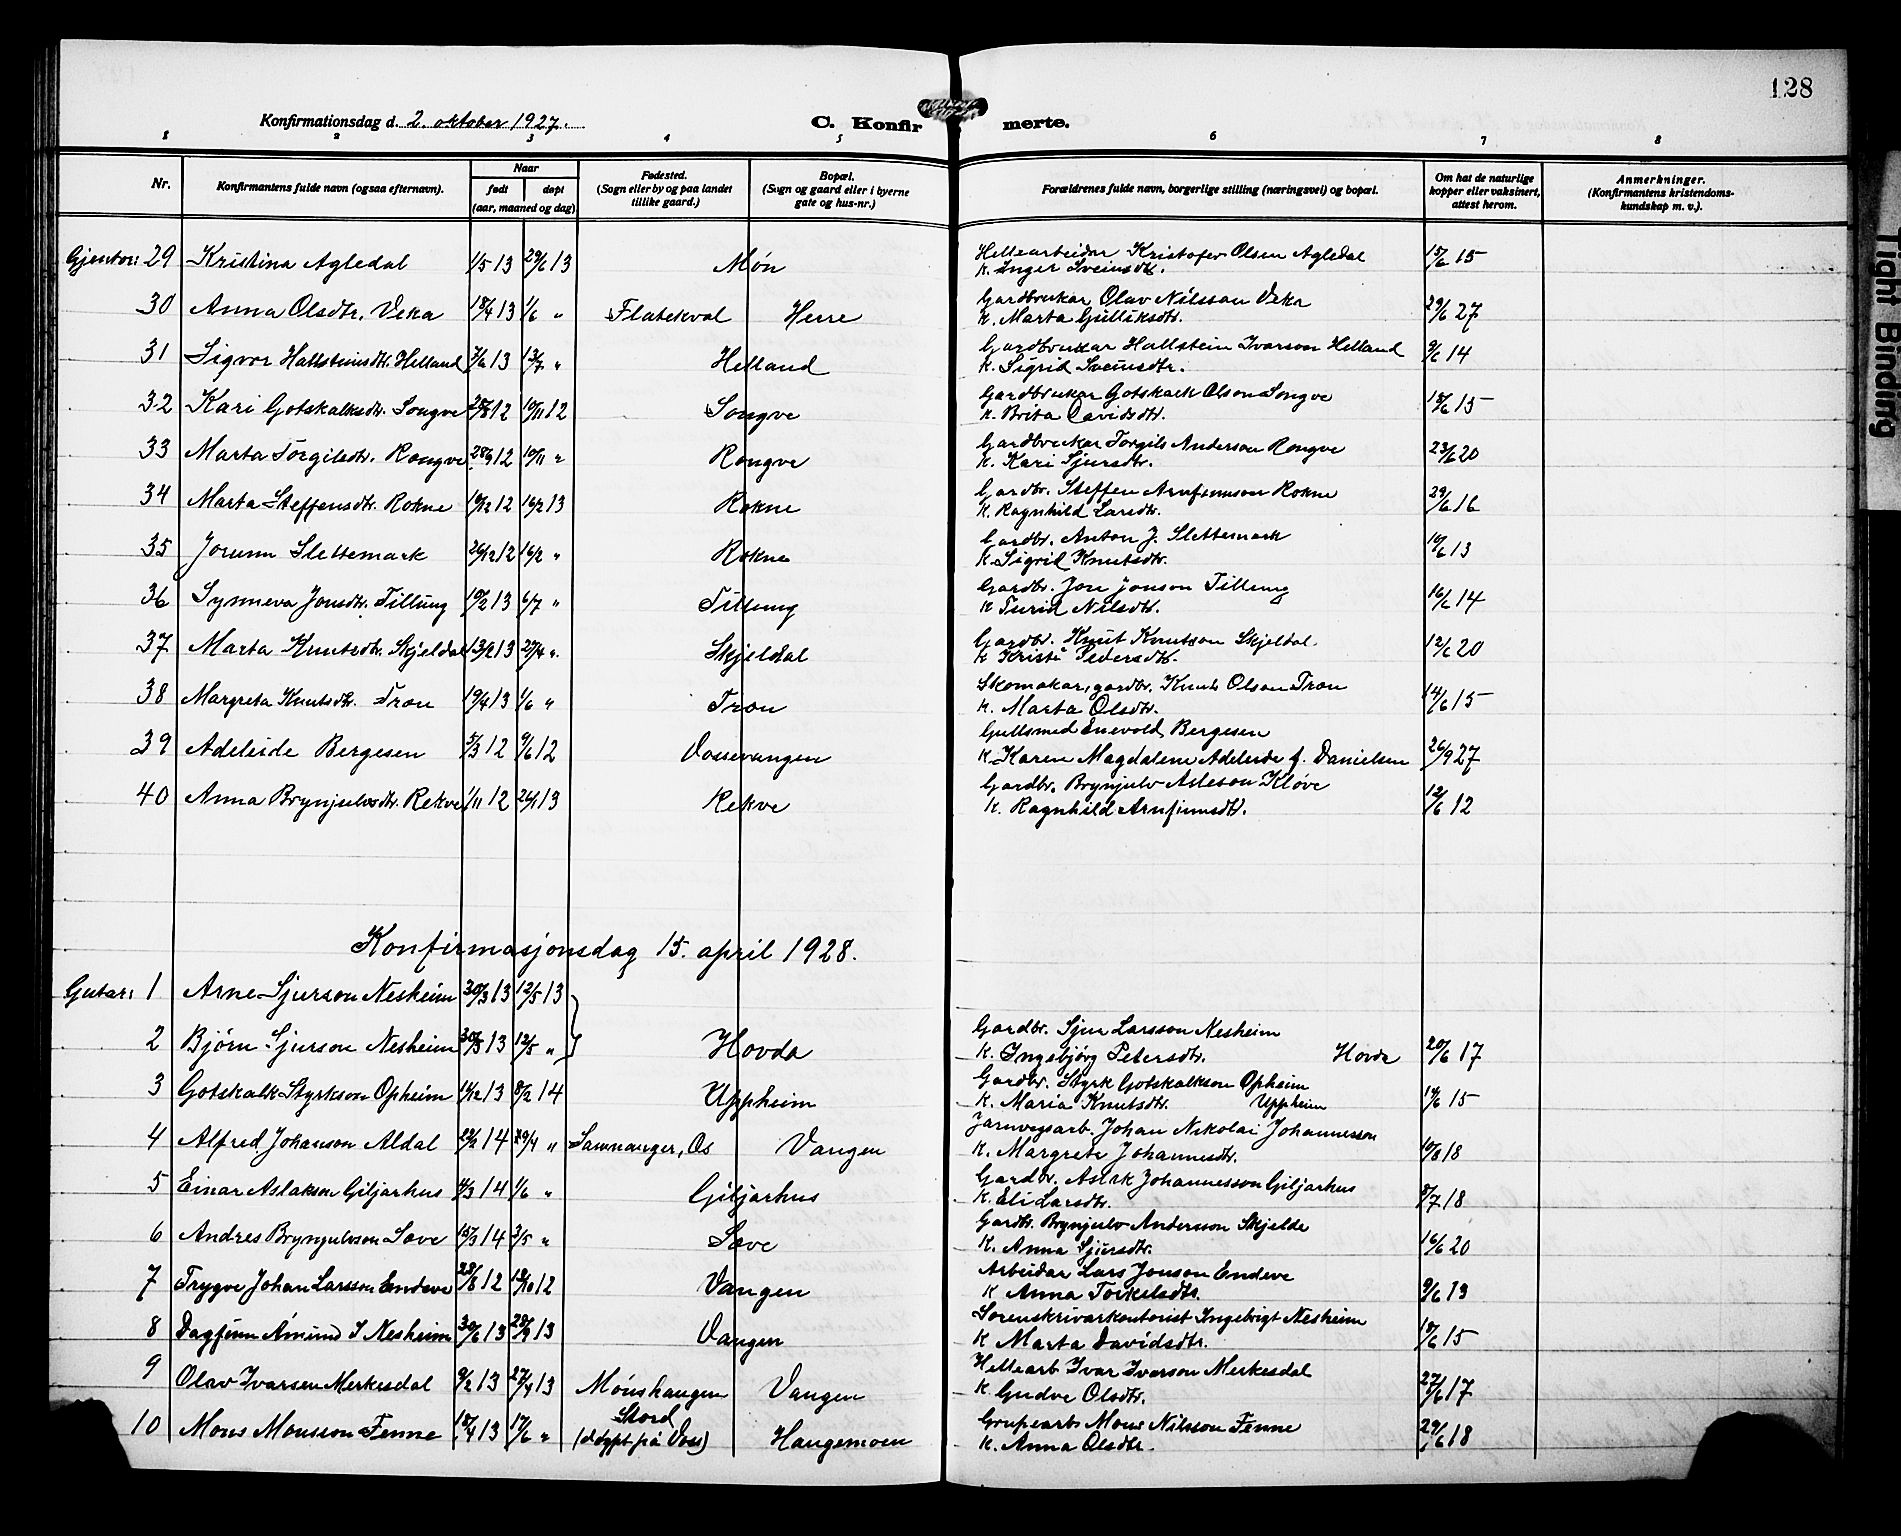 128
Konfirmationsdag d. 2. oktober 1927.
C. Konfir merte.
1 2 3 4 5 6 7 8
Nr. Konfirmantens fulde navn (ogsaa efternavn). Naar født døpt (aar, maaned og dag) Fødested. (Sogn eller by og paa landet tillike gaard.) Bopæl. (Sogn og gaard eller i byerne gate og hus-nr.) Forældrenes fulde navn, borgerlige stilling (næringsvei) og bopæl. Om hat de naturlige kopper eller vaksinert, attest herom. Anmerkninger. (Konfirmantens kristendomskundskap m. v.).
Gjentor: 29 Kristina Agledal 1/5 13 29/6 13 Møn Hellearbeidar Kristofer Olsen Agledal 15/6 15
K. Inger Sveinsdt.
30 Anna Olsdtr. Veka 18/4 13 1/6 " Flatekval Herre Gardbrukar Olav Nilsson Veka
K. Marta Gulliksdtr. 29/6 27
31 Sigvor Hallsteinsdt. Helland 7/6 13 13/7 " Helland Gardbrukar Hallstein Ivarson Helland 9/6 14
K. Sigrid Sveinsdtr.
32 Kari Gotskalksdtr. Songve 25/8 12 10/11 12 Songve Gardbrukar Gotskalk Olson Songve
K. Brita Davidsdtr. 15
33 Marta Torgilsdtr. Rongve 28/9 12 10/11 " Rongve Gardbrukar Torgils Anderson Rongve 23/6 20
K. Kari Sjursdtr.
34 Marta Steffensdtr. Rokne 10/12 12 16/2 13 Rokne Gardbr. Steffen Arnfinnson Rokne 29/6 16
K. Ragnhild Larsdtr.
35 Jorunn Slettemark 26/12 12 16/2 " Rokne Gardbr. Anton J. Slettemark 10/6 13
K. Sigrid Knutsdtr.
36 Synneva Jonsdtr. Tillung 10/2 13 6/7 " Tillung Gardbr. Jon Jonson Tillung 16/6 14
K Turid Nilsdtr.
37 Marta Knutsdtr. Skjeldal 13/2 13 27/4 " Skjeldal Gardbr. Knut Knutson Skjeldal. 12/6 20
K Kristi Pedersdtr.
38 Margreta Knutsdtr. Tron 19/4 13 1/6 " Tron Skomakar, gardbr. Knut Olson Tron 14/6 15
K. Marta Olsdtr.
39 Adeleide Bergesen 5/3 12 9/6 12 Vossevangen Gullsmed Enevold Bergesen
K. Karen Magdalene Adeleide f. Danielsen 26/9 27
40 Anna Brynjulvsdtr. Rekve 1/11 12 26/1 13 Rekve Gardbr. Brynjulv Asleson Kløve
K. Ragnhild Arnfinnsdtr. 12/6 12
Konfirmasjonsdag 15. april 1928.
Gutar: 1 Arne Sjurson Nesheim 30/3 13 12/5 13
2 Bjørn Sjurson Nesheim 30/3 13 12/5 " Hovda Gardbr. Sjur Larsson Nesheim
K. Ingebjørg Petersdtr. Hovda 20/6 17
3 Gotskalk Styrkson Opheim 11/12 13 8/2 14 Uppheim Gardbr. Styrk Gotskalkson Opheim
K. Maria Knutsdtr. Uppheim 14/6 15
4 Alfred Johanson Aldal 14 29/4 " Samnanger, Os Vangen Jarnvegsarb. Johan Nikolai Johannesson
K. Margrete Johannesdtr. 10/8 18
5 Einar Aslakson Giljarhus 4/3 14 1/6 " Giljarhus Gardbr. Aslak Johannesson Giljarhus
K. Eli Larsdtr. 8/7 18
6 Andres Brynjulvson Sæve 15/3 14 3/5 " Sæve Gardbr. Brynjulv Andersson Skjelde
K. Anna Sjursdtr. 16/6 20
7 Trygve Johan Larsson Endeve 28/8 12 12 Vangen Arbeidar Lars Jonson Endeve
K Anna Torkelsdtr. 9/6 13
8 Dagfinn Amund I Nesheim 30/6 13 28/9 13 Vangen Sorenskrivarkontorist Ingebrigt Nesheim
K Marta Davidsdtr. 18/6 15
9 Olav Ivarsen Merkesdal 9/2 13 27/4 13 Mønshaugen Vangen Hellearb Ivar Ivarson Merkesdal
K Gudve Olsdtr. 27/6 17
10 Mons Monsson Fenne 18/4 13 17/6 " Stord (døypt på Voss) Haugamoen Gruvearb. Mons Nilsson Fenne
K. Anna Olsdtr. 29/6 18
Tight Binding